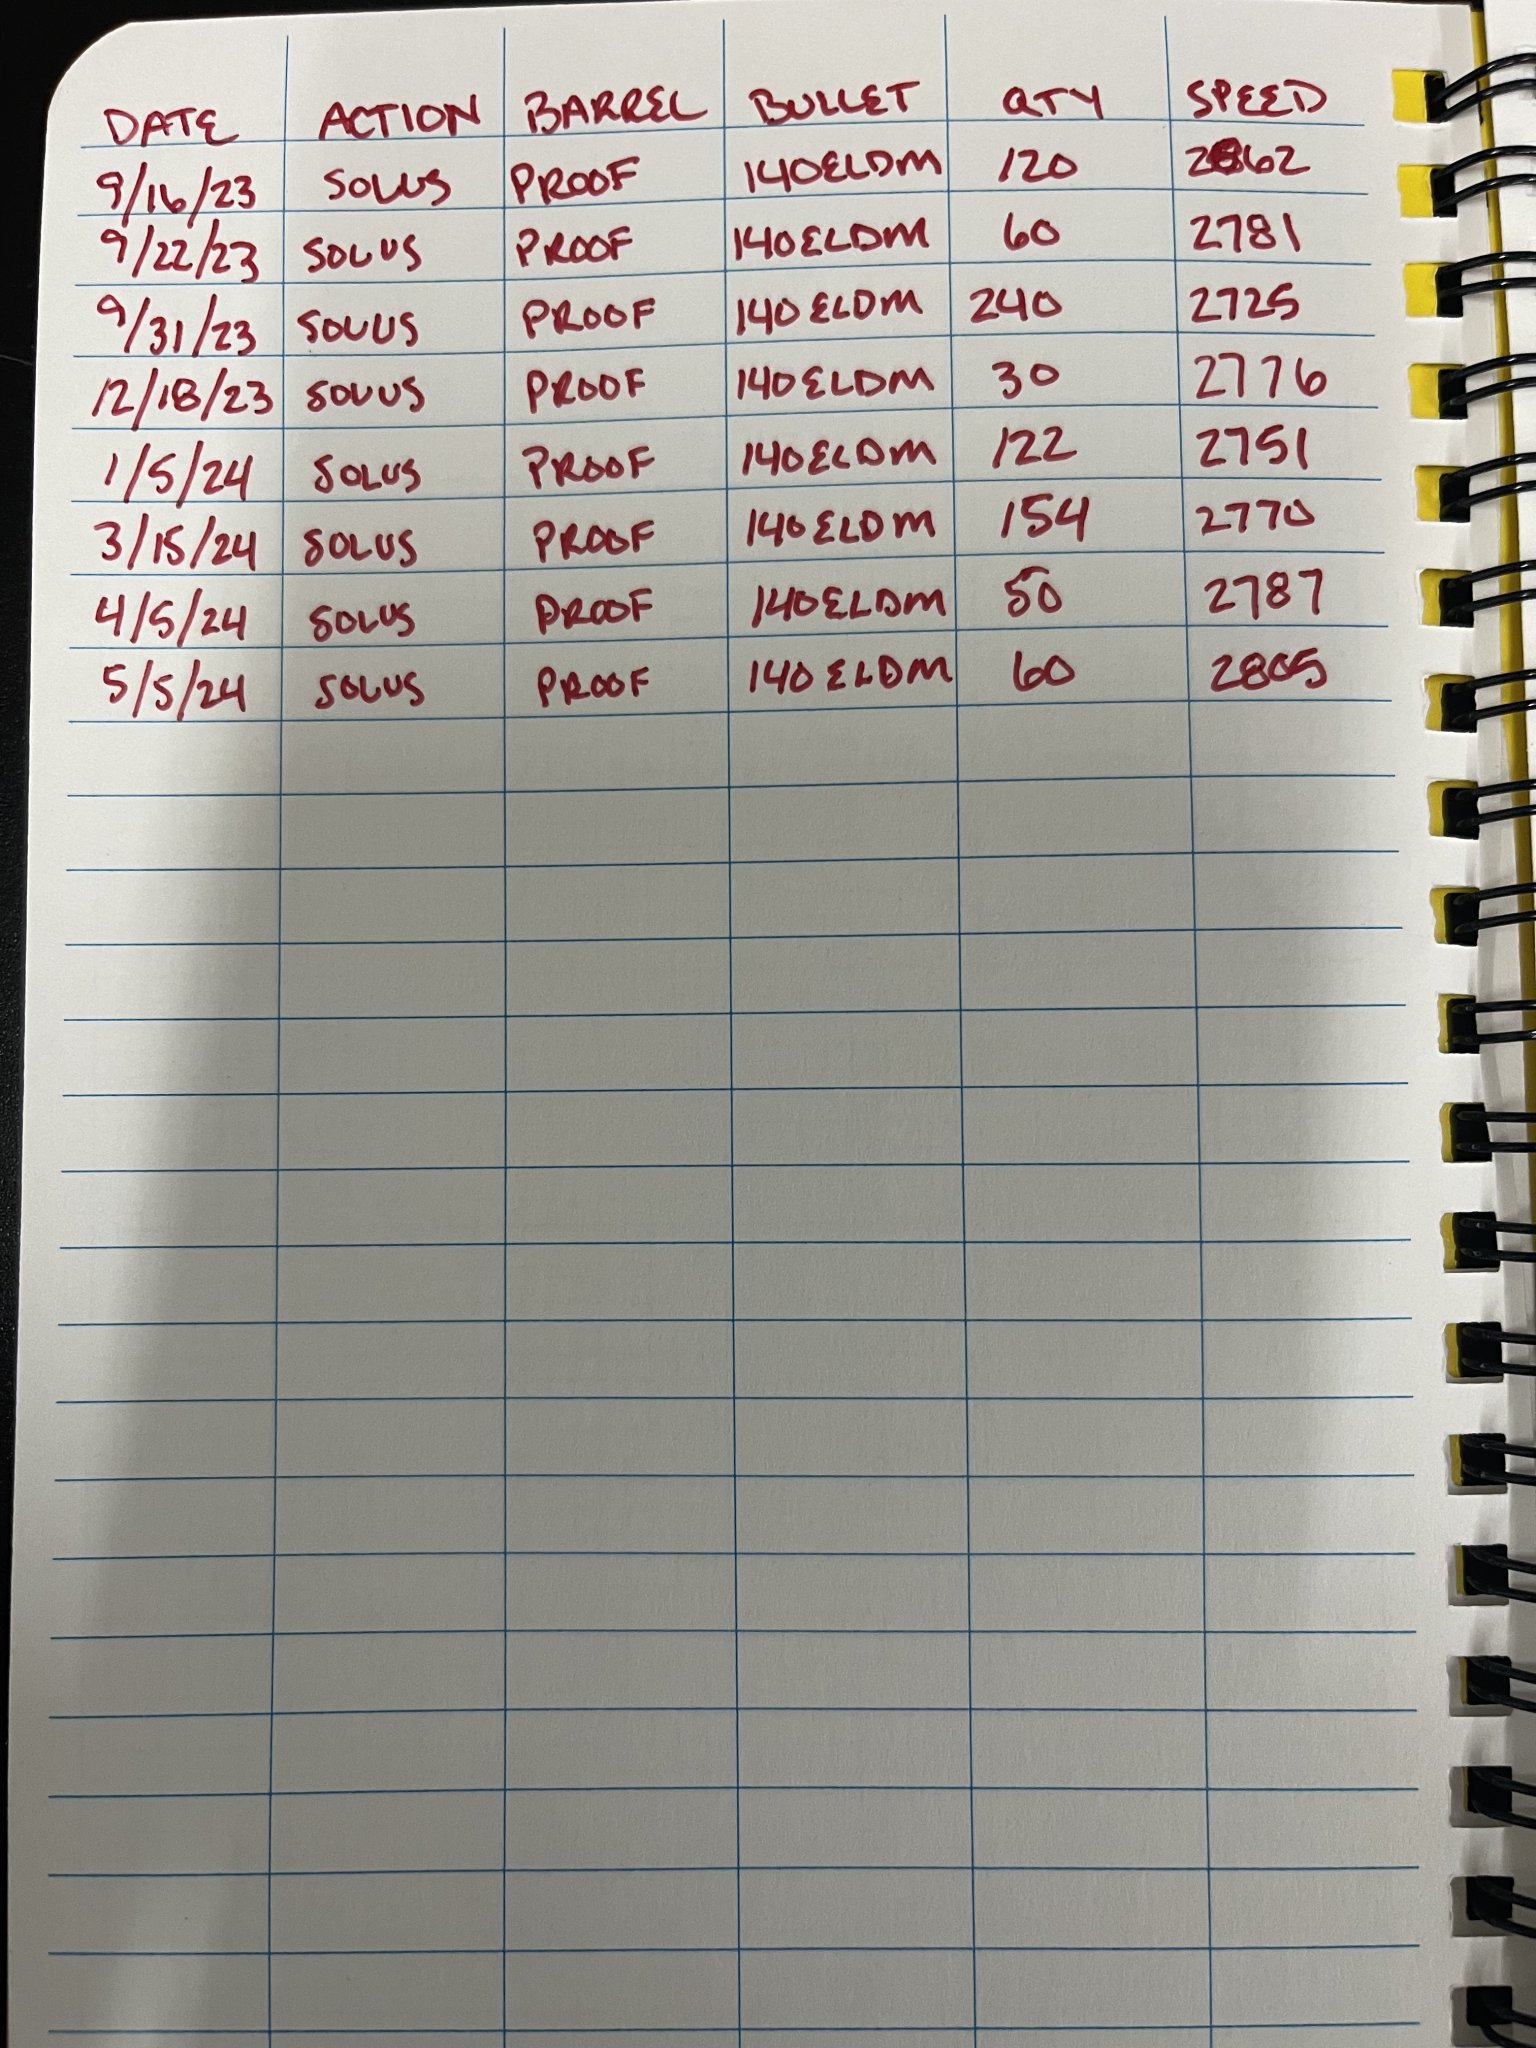 DATE ACTION BARREL BULLET QTY SPEED
9/16/23 SOLUS PROOF 140ELDM 120 2862
9/22/23 SOLUS PROOF 140ELDM 60 2781
9/31/23 SOLUS PROOF 140 ELDM 240 2725
12/18/23 SOLUS PROOF 140ELDM 30 2776
1/5/24 SOLUS PROOF 140ELDM 122 2751
3/15/24 SOLUS PROOF 140ELDM 154 2770
4/5/24 SOLUS PROOF 140ELDM 50 2787
5/5/24 SOLUS PROOF 140 ELDM 60 2805